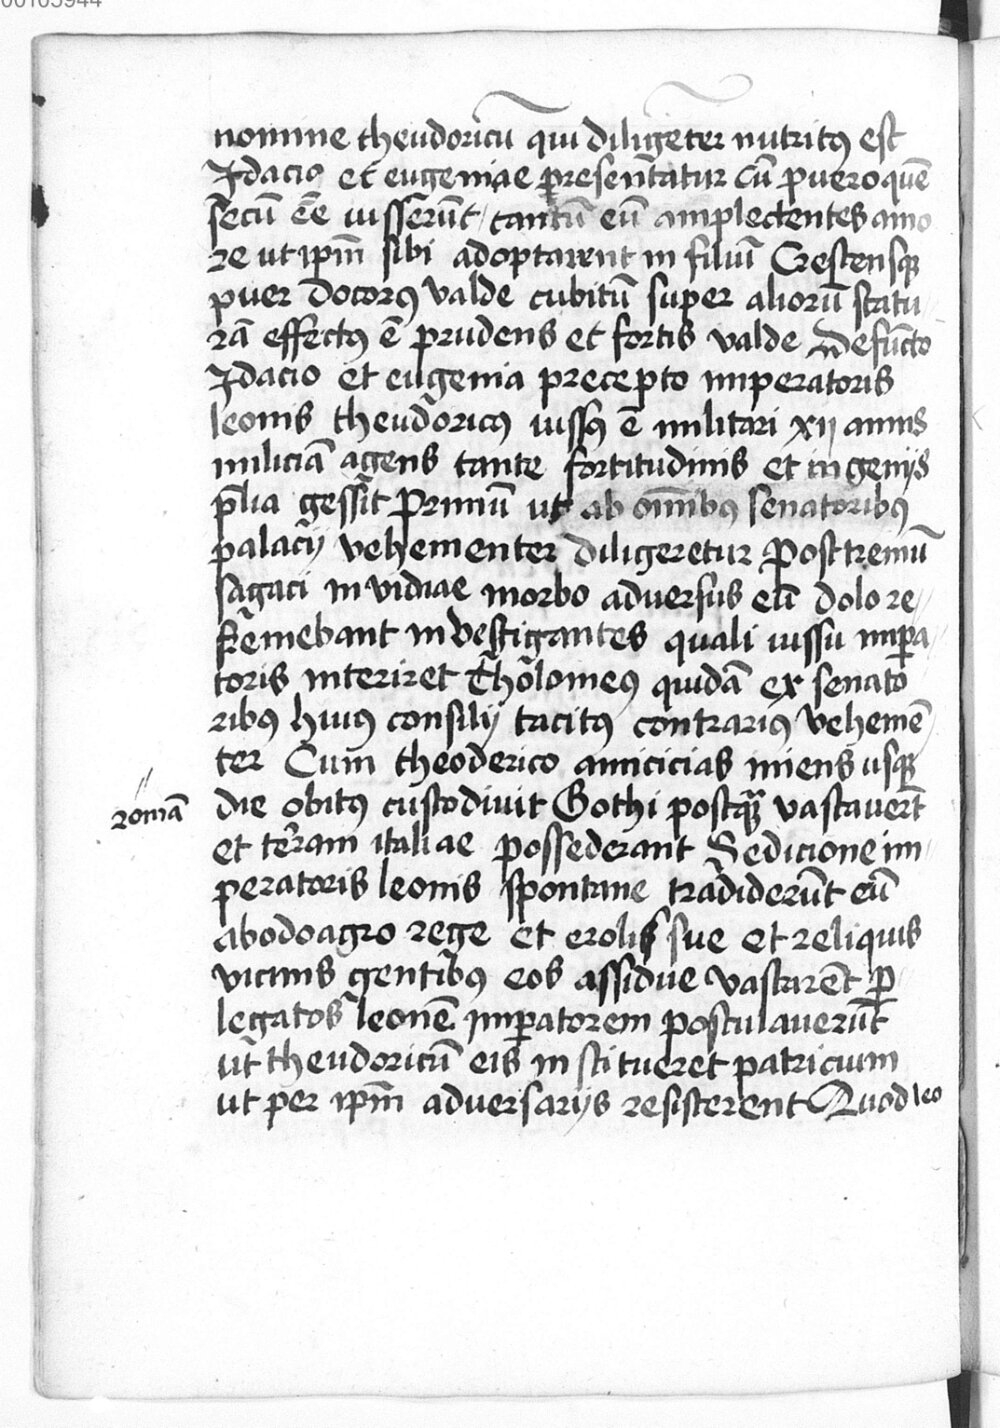 nomine theudoricū qui diligēter nutritꝰ est
Idacio et eugeniae presentatur cū puero quē
secū eē iusserunt tantū eū amplectentes amo
re ut ipm̄ sibi adoptarent in filiū Crescensqꝫ
puer Doctorꝰ valde cubitū super aliorū statu
rā effectꝰ ē prudens et fortis valde Defūcto
Idacio et eugenia precepto imperatoris
leonis theudoricꝰ iussꝰ ē militari xij annis
miliciā agens tante fortitudinis et ingenijs
p̄lia gessit Primū ut ab om̄ibꝰ senatoribꝰ
palacij vehementer diligeretur Posttremū
sagaci invidiae morbo adversus eū dolo re
fremebant investigantes quali iussu impa
toris interiret Tholomeꝰ quidā ex senato
ribꝰ huiꝰ consilij tacitꝰ contrariꝰ vehemē
ter Cum theoderico amicicias iniens usqꝫ
die obitꝰ custodivit Gothi postqꝫ vastaverūt
romā
et terram italiae possederant Sedicione im
peratoris leonis spontane tradiderūt eū
ab odoagro rege et erolis sue et reliquis
vicinis gentibꝰ eos assidue vastarēt ꝑ
legatos leonē imꝑatorem postulaverūt
ut theudoricū eis institueret patricium
ut per ipm̄ adversarijs resisterent Quod leo